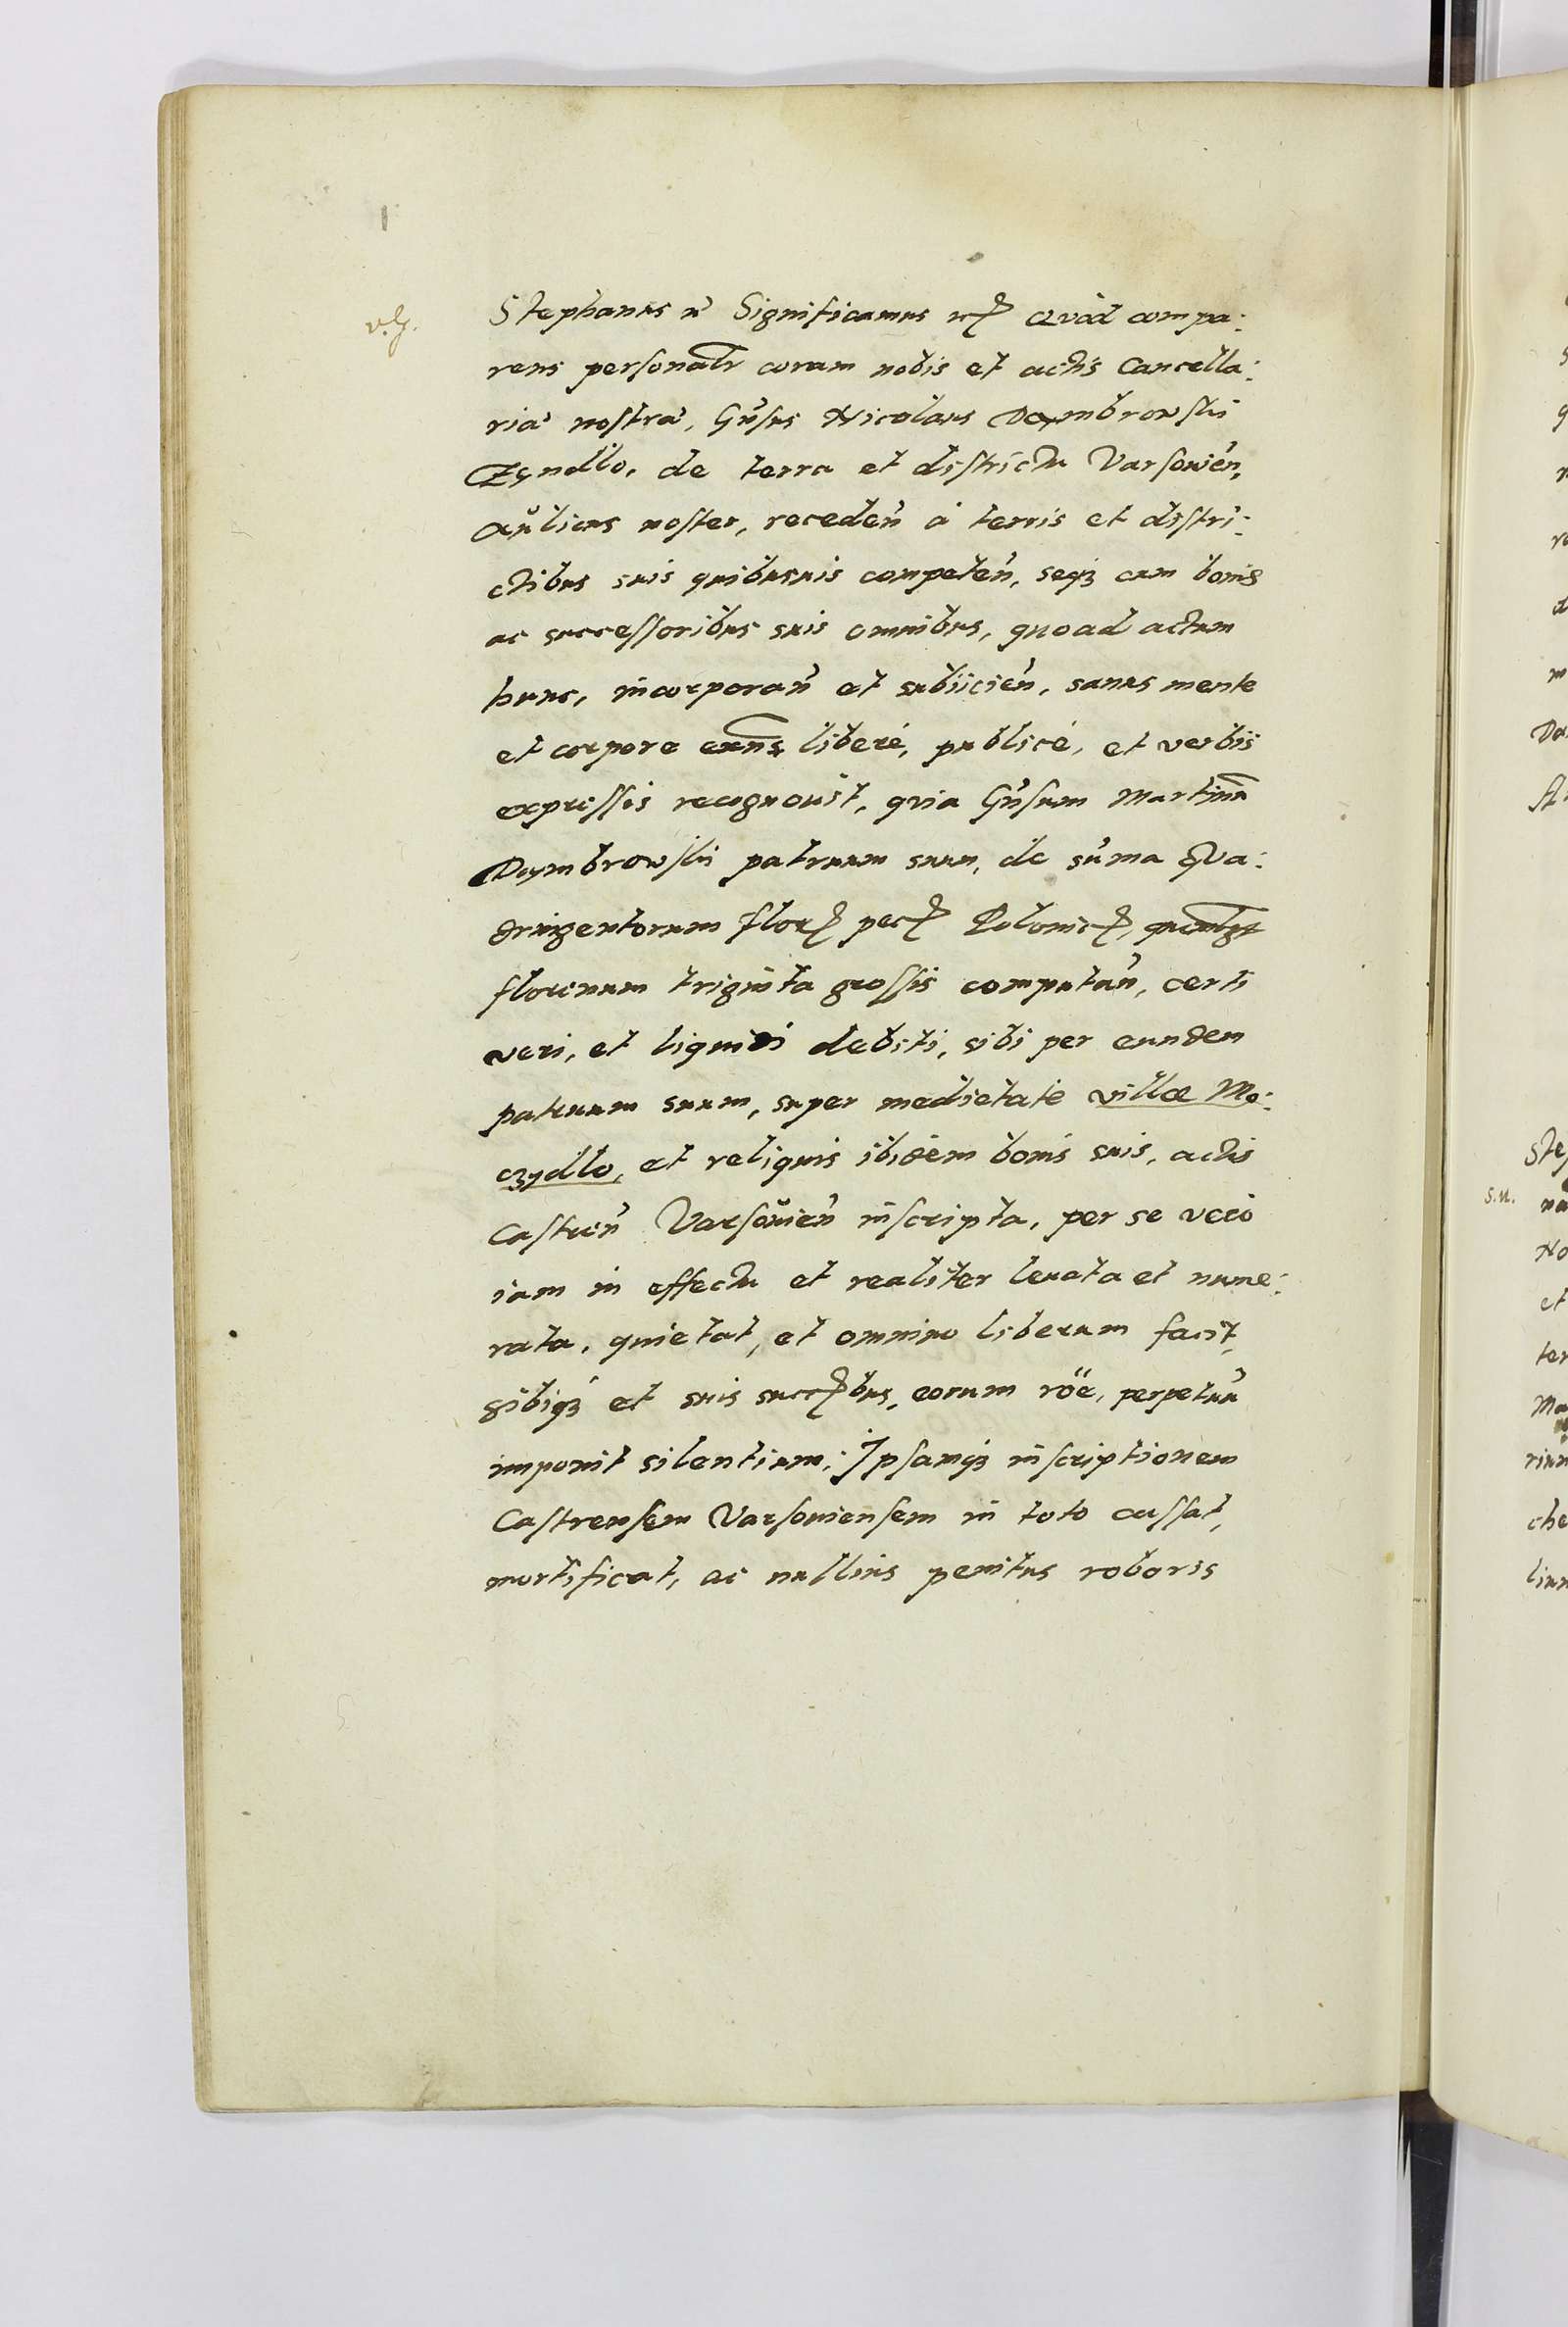 Stephanus Significamus Quòd compa:
rens personalr coram nobis et actis Cancella:
ria nostra, Gnsus Nicolaus Dambrowski
Czyndlo, de terra et districtu Varsovien,
Aulicus noster, receden à terris et distri:
ctibus suis quibusuis competen, seqz cum bonis
ac successoribus suis omnibus, quoad actum
hunc, incorporan et subiicien, sanus mente
et corpore exns liberè, publicè, et verbis
expressis recognouit, quia Gnsum Martinu
Dambrowski patruum suum, de suma Qua:
dringentorum flor pec Polonic,
florenum triginta grossis computan, certi
veri, et liquidi debiti, sibi per eundem
patruum suum, super medietate villæ Mo:
czydlo, et reliquis ibidem bonis suis, actis
Castren Varsouien inscripta, per se verò
iam in effectu et realiter leuata et nume:
rata, quietat, et omnino liberum facit,
sibiqz et suis succbus, eorum roe, perpetuu
imponit silentium; Ipsamqz inscriptionem
Castrensem Varsouiensem in toto cassat,
mortificat, ac nullius penitus roboris